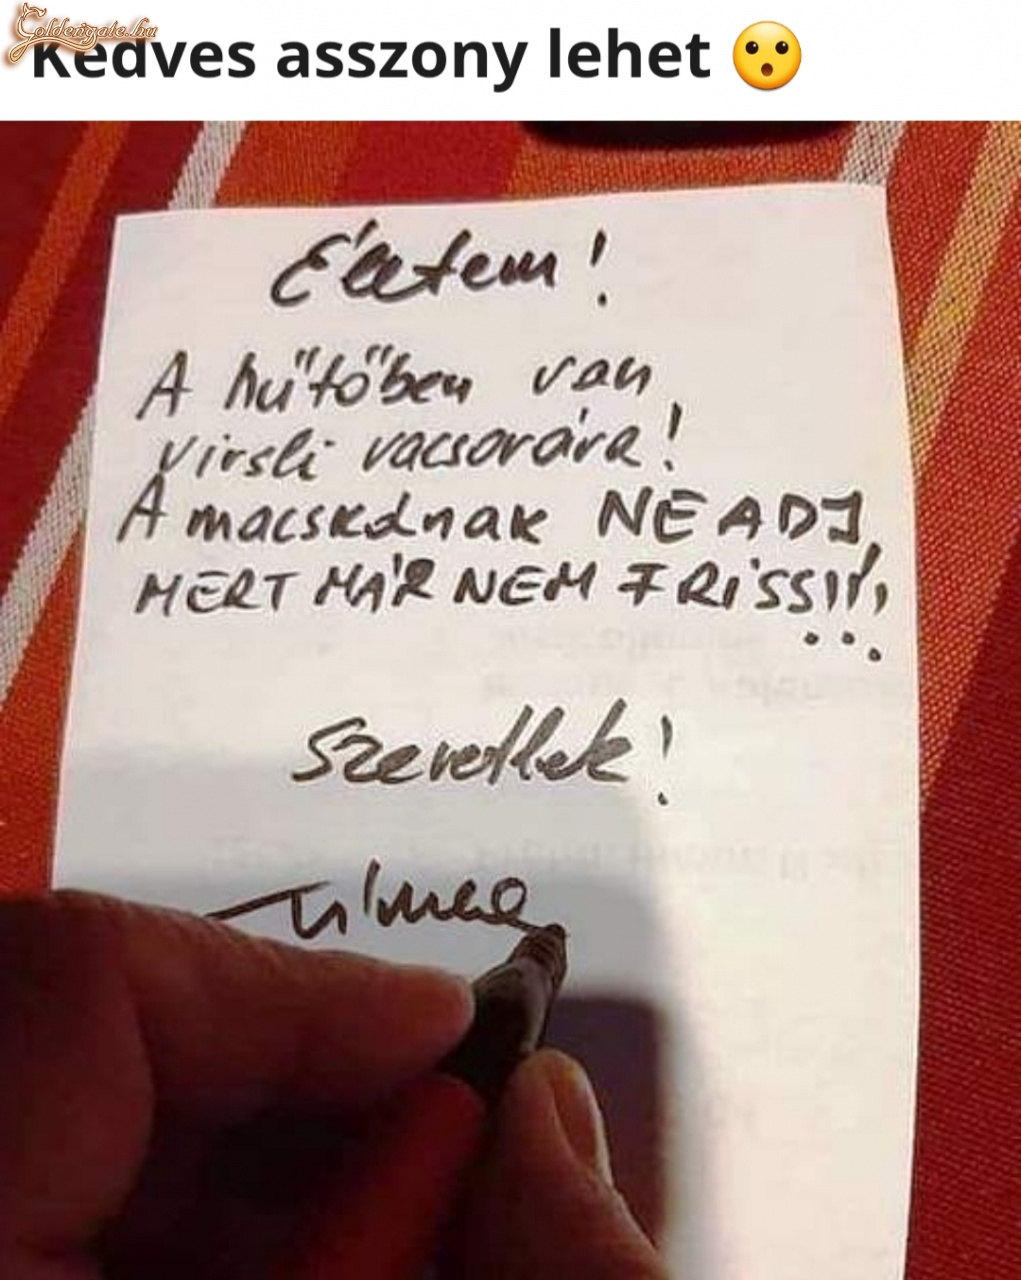 Goldengate.hu
Kedves asszony lehet 😮
Életem!
A hűtőben van
virsli vacsorára!
A macskának NE ADJ,
MERT MÁR NEM FRISS!!!
Szeretlek!